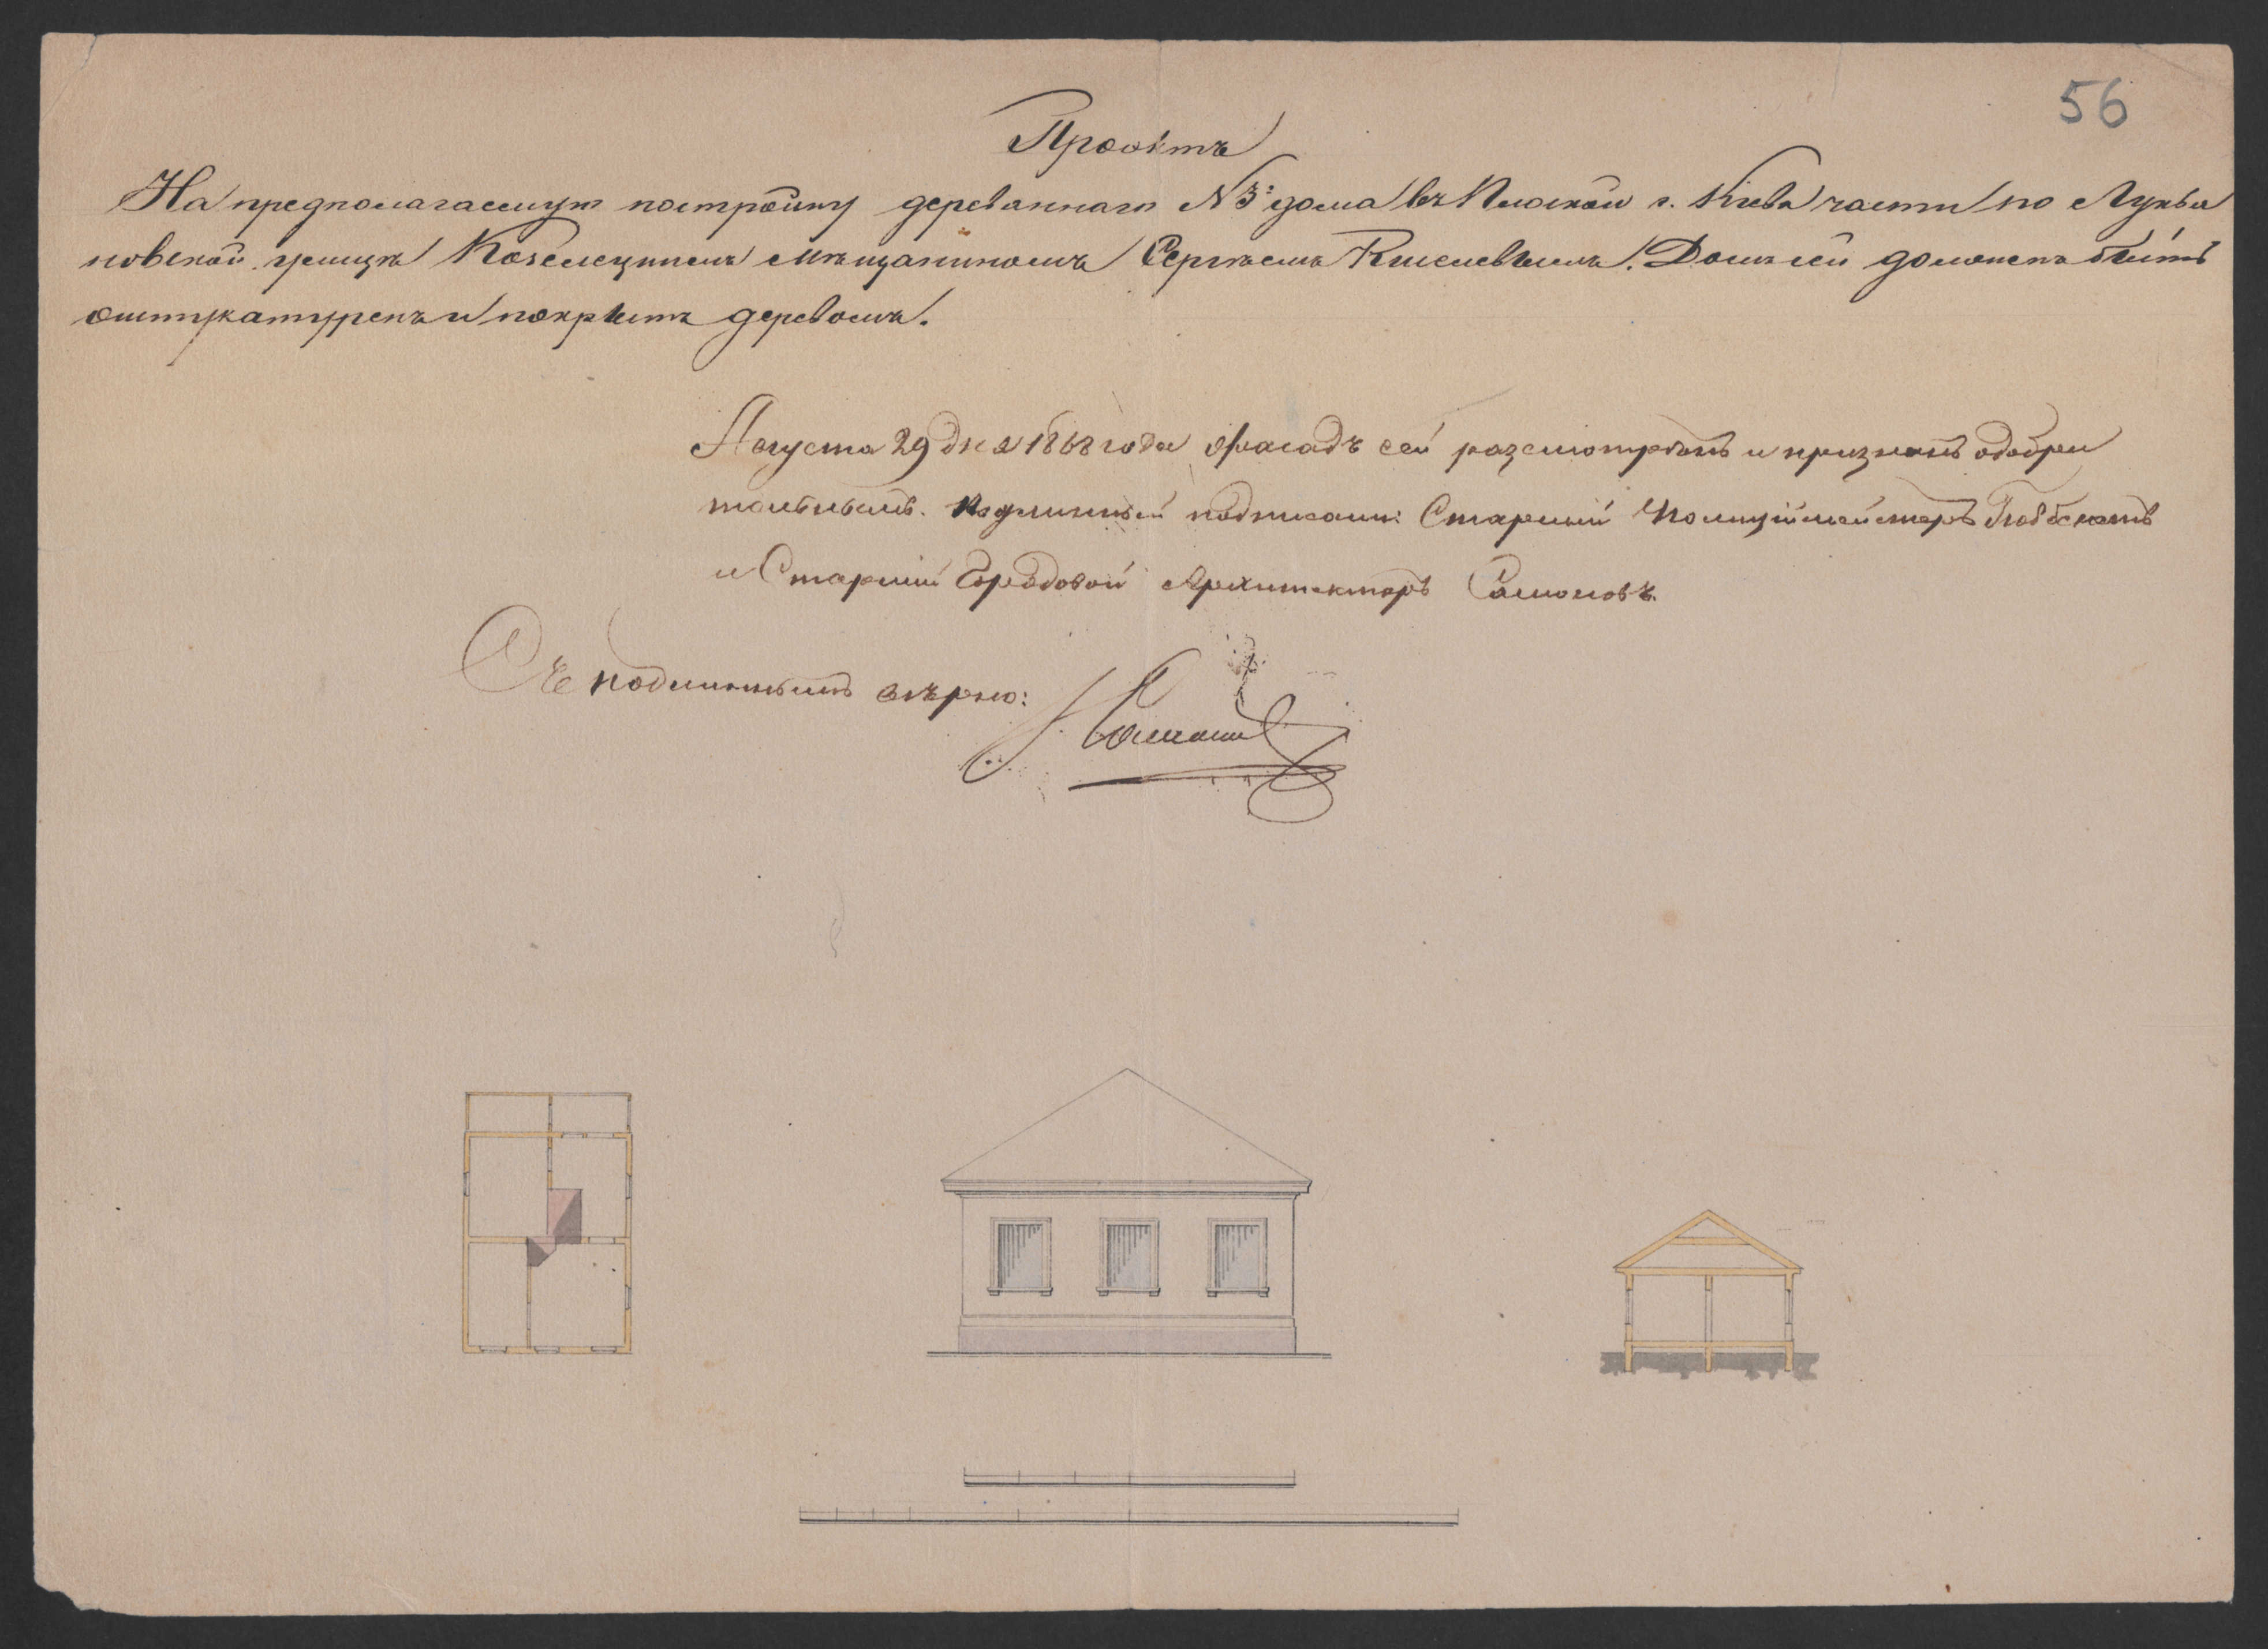 56
Проэктъ
На предполагаемую постройку деревяннаго № 3й дома въ Плоской г. Кіева части по Лукья
новской улицѣ Козелецкимъ мѣщаниномъ Сергѣемъ Киселевымъ. Домъ сей долженъ быть
оштукатуренъ и покрытъ деревомъ.
Августа 29 дня 1868 года фасадъ сей разсмотрѣнъ и признанъ одобри
тельнымъ. Подлинный подписали: Старшій Полиціймейстеръ
и Старшій Городовой Архитекторъ
Съ подлиннымъ вѣрно: